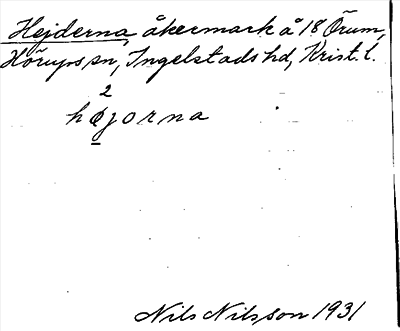 Hejderna, åkermark å 18 Örum,
Hörups sn, Ingelstads hd, Krist. l.
2
højorna
Nils Nilsson 1931